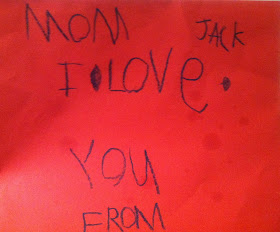 MOM JACK
I LOVE.
YOU
FROM